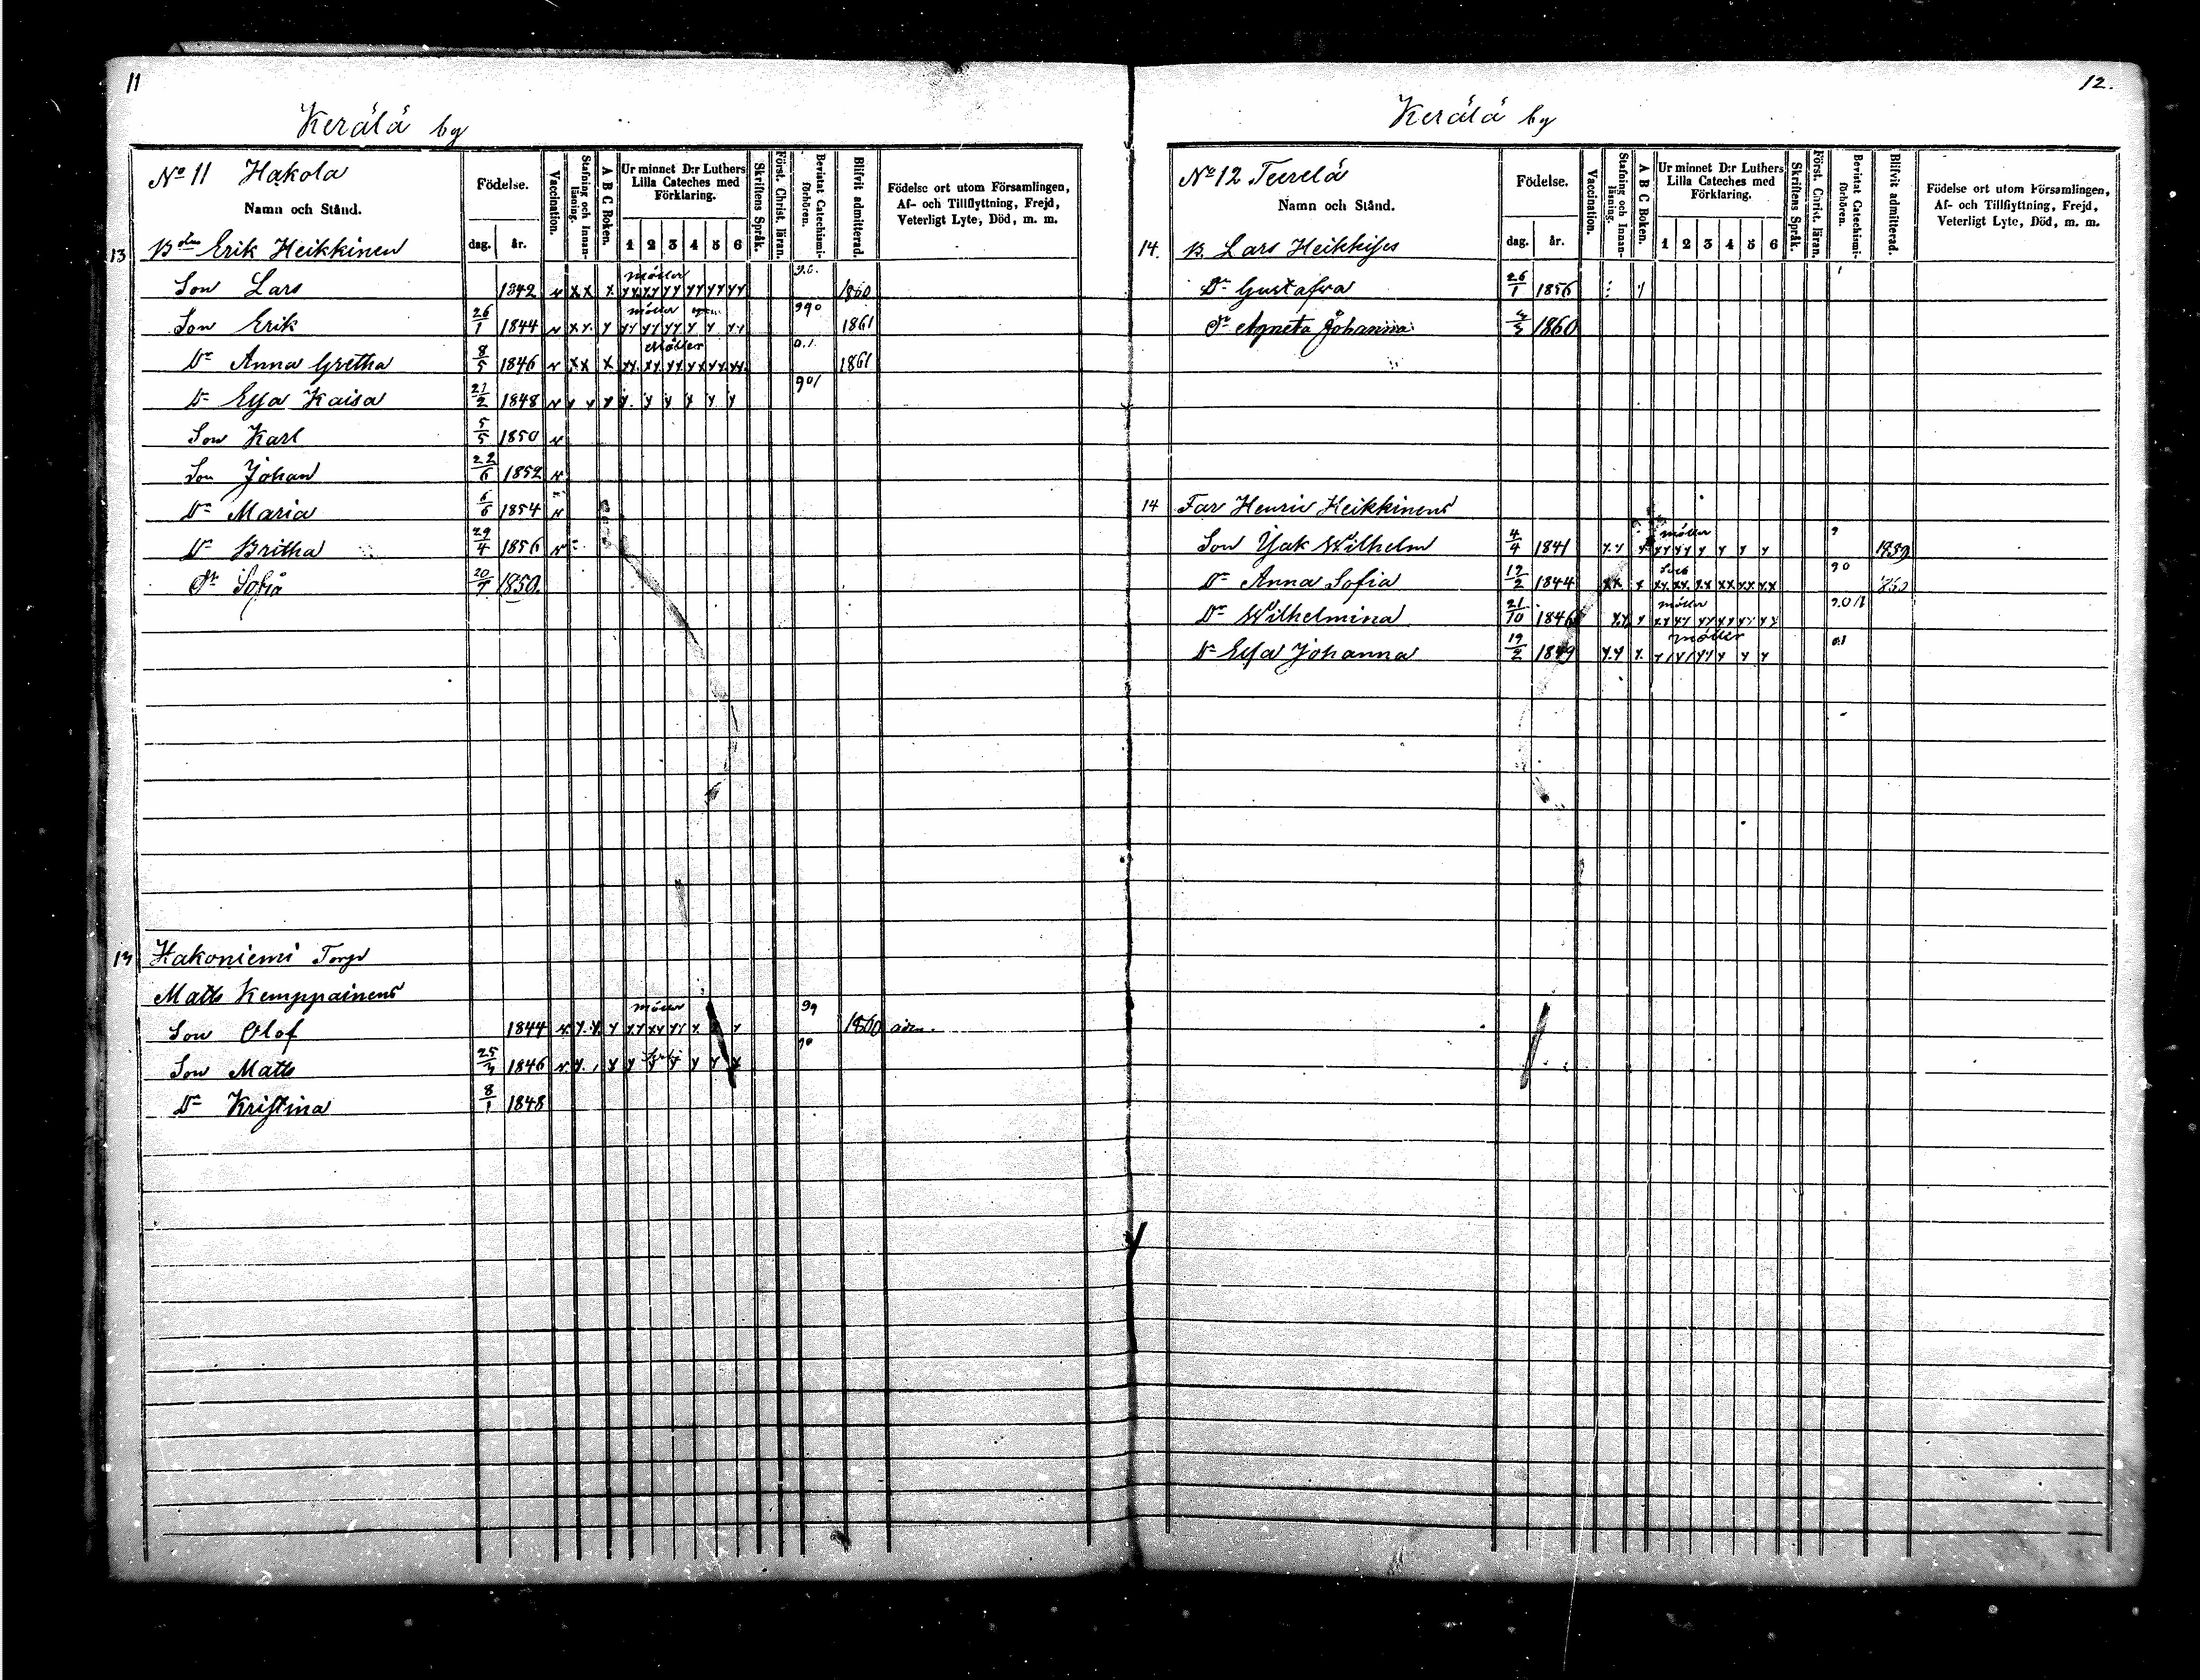 11
Kerälä by
No 11 Hakola
Namn och Stånd.
Födelse.
dag. år.
Vaccination.
Stafning och Innanläsning.
A B C Boken.
Ur minnet D:r Luthers Lilla Cateches med Förklaring.
1 2 3 4 5 6
Skriftens Språk.
Först. Christ. läran.
Bevistat Catechismiförhören.
Blifvit admitterad.
Födelse ort utom Församlingen, Af- och Tillflyttning, Frejd, Veterligt Lyte, Död, m. m.
13 Erik Heikkinen
Son Lars 1842 möller 1860
Son Erik 26/1 1844 möller 990 1861
Dr Anna Gretha 8/5 1846 Möller 0.1 1861
Dr Elsa Kaisa 21/2 1848 901
Son Karl 5/5 1850
Son Johan 22/6 1852
Dr Maria 6/6 1854
Dr Britha 29/4 1856
Dr Sofia 20/7 1850.
13 Hakoniemi Torp
Matts Kemppainens
Son Olof 1844 möller 99 1860 adm.
Son Matts 25/3 1846
Dr Kristina 8/1 1848
12.
Kerälä by
No 12 Teerelä
Namn och Stånd.
Födelse.
dag. år.
Vaccination.
Stafning och Innanläsning.
A B C Boken.
Ur minnet D:r Luthers Lilla Cateches med Förklaring.
1 2 3 4 5 6
Skriftens Språk.
Först. Christ. läran.
Bevistat Catechismiförhören.
Blifvit admitterad.
Födelse ort utom Församlingen, Af- och Tillflyttning, Frejd, Veterligt Lyte, Död, m. m.
14. B. Lars Heikkises
Dr Gustafva 26/1 1856
Dr Agneta Johanna 1860
14 Far Henric Heikkinens
Son Isak Wilhelm 4/4 1841 möller 1859
Dr Anna Sofia 12/2 1844 90
Dr Wilhelmina 21/10 1846 möller
Dr Elsa Johanna 19/2 1849 möller 0.1